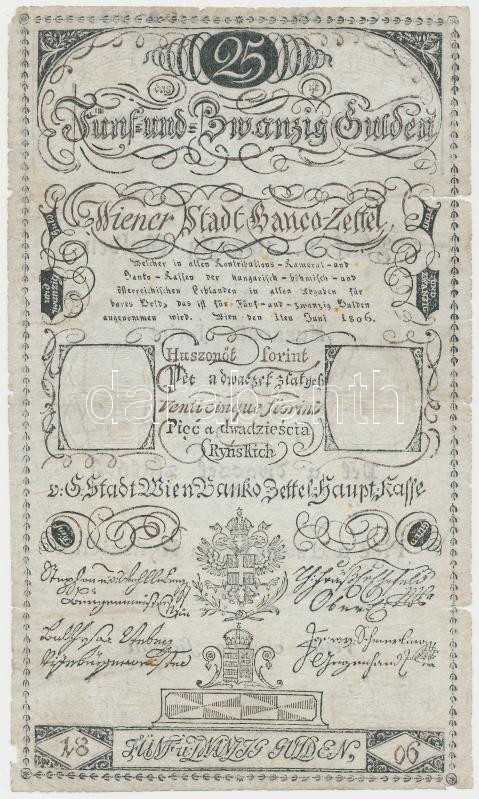 25
das ist
Fünf-und-Zwanzig Gulden
Wiener Stadt Banco-Zettel,
Welcher in allen Kontributions-Kameral-und
Banko-Kassen der hungarisch-böhmisch-und
österreichischen Erblanden in allen Abgaben für
bares Geld, das ist für Fünf-und-zwanzig Gulden
angenommen wird. Wien den 1ten Juni 1806.
Huszonöt forint
Pět a dwaczet zlatych
Venti cinque fiorini
Pięć a dwadzieścia
Ryńskich
v: G. Stadt Wien Banko Zettel Haupt Kasse
darabanth
18 FÜNF U. ZWANZIG GULDEN, 06